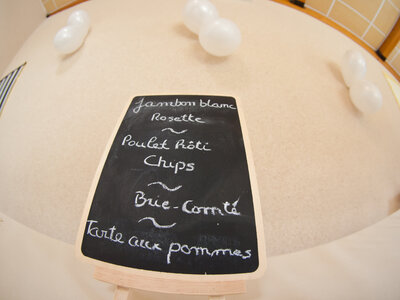 Jambon blanc
Rosette
~
Poulet Rôti
Chips
~
Brie-Comté
~
Tarte aux pommes